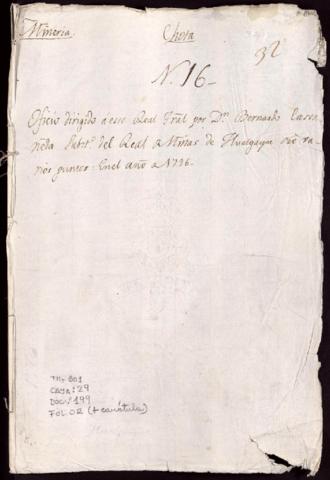 Mineria. Chota
32
N. 16-
Oficio dirigido à este Real Tral. por Dn. Bernardo Casta
ñeda Subto. del Real de Minas de Hualgayoc sre. va
rios puntos = En el año de 1796.
CAJA: 29
DOC: 199
FOL: 02 (+ carátula)